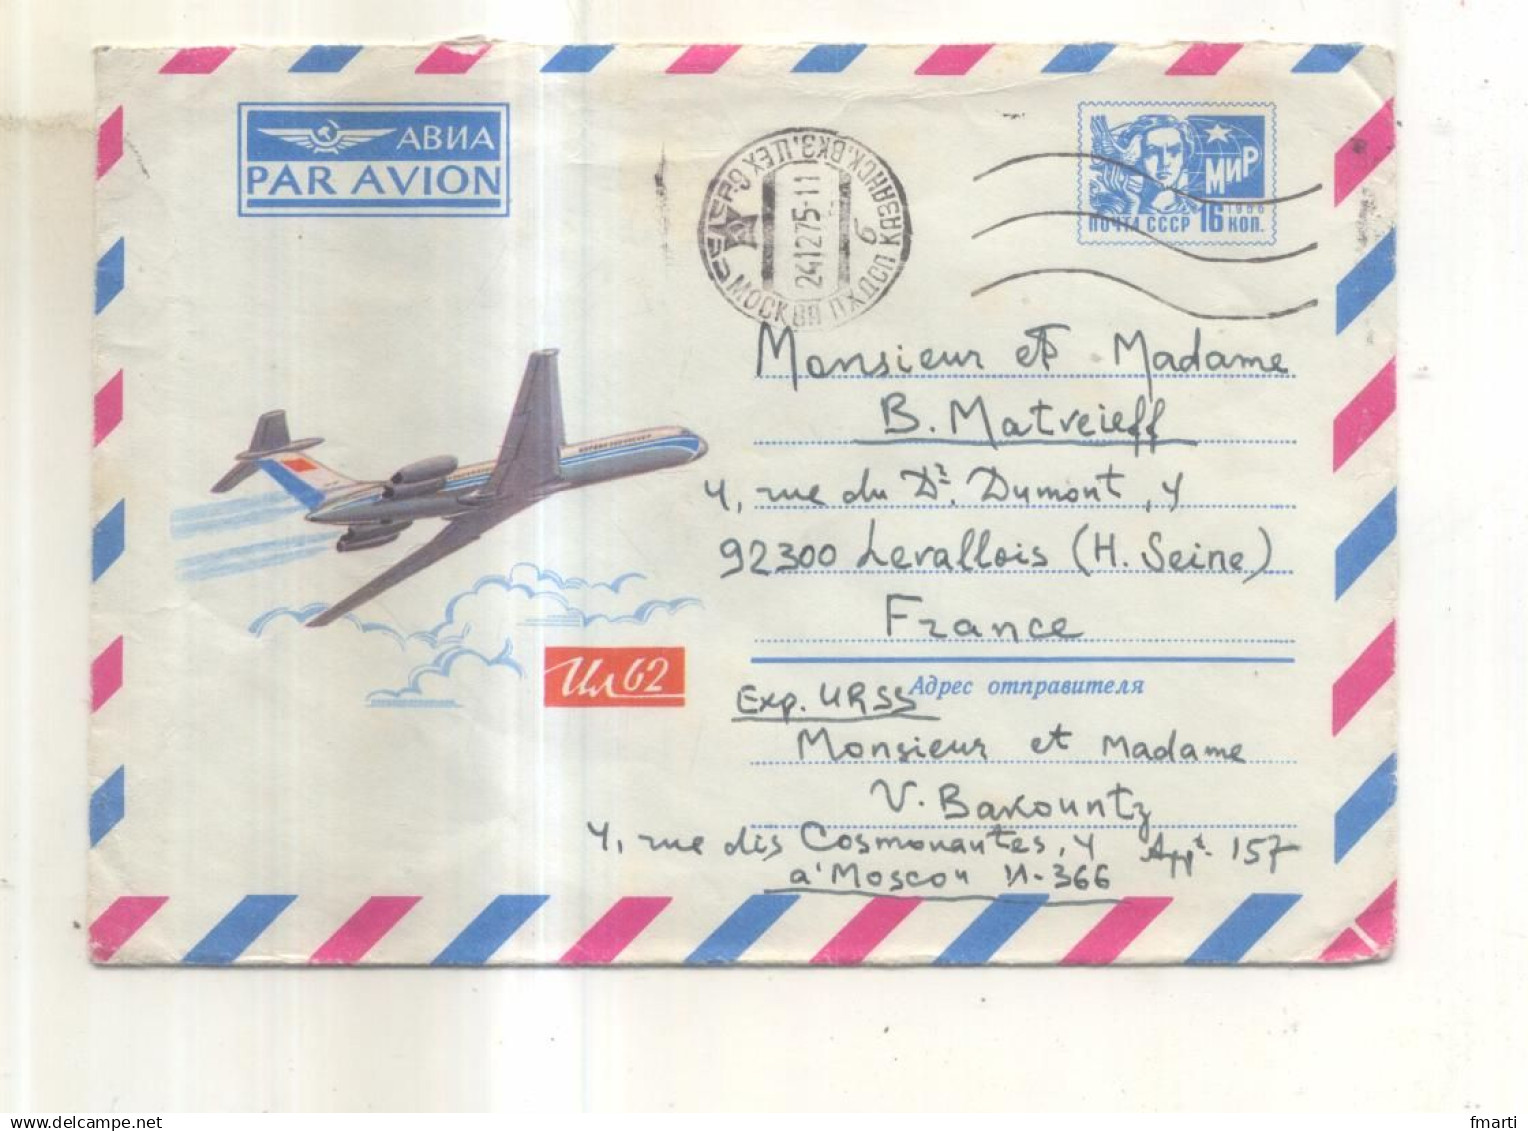 АВИА
PAR AVION
МОСКВА ПЖДСП КАЗАНСК. ВКЗ. ЦЕХ
24 12 75-11
б
МИР
1966
ПОЧТА СССР 16 КОП.
Monsieur et Madame
B. Matveieff
4, rue du Dr. Dumont, 4
92300 Levallois (H. Seine)
France
Ил 62
Адрес отправителя
Exp. URSS
Monsieur et Madame
V. Bakountz
4, rue dis Cosmonautes, 4 Appt. 157
a' Moscou И-366
fmarti